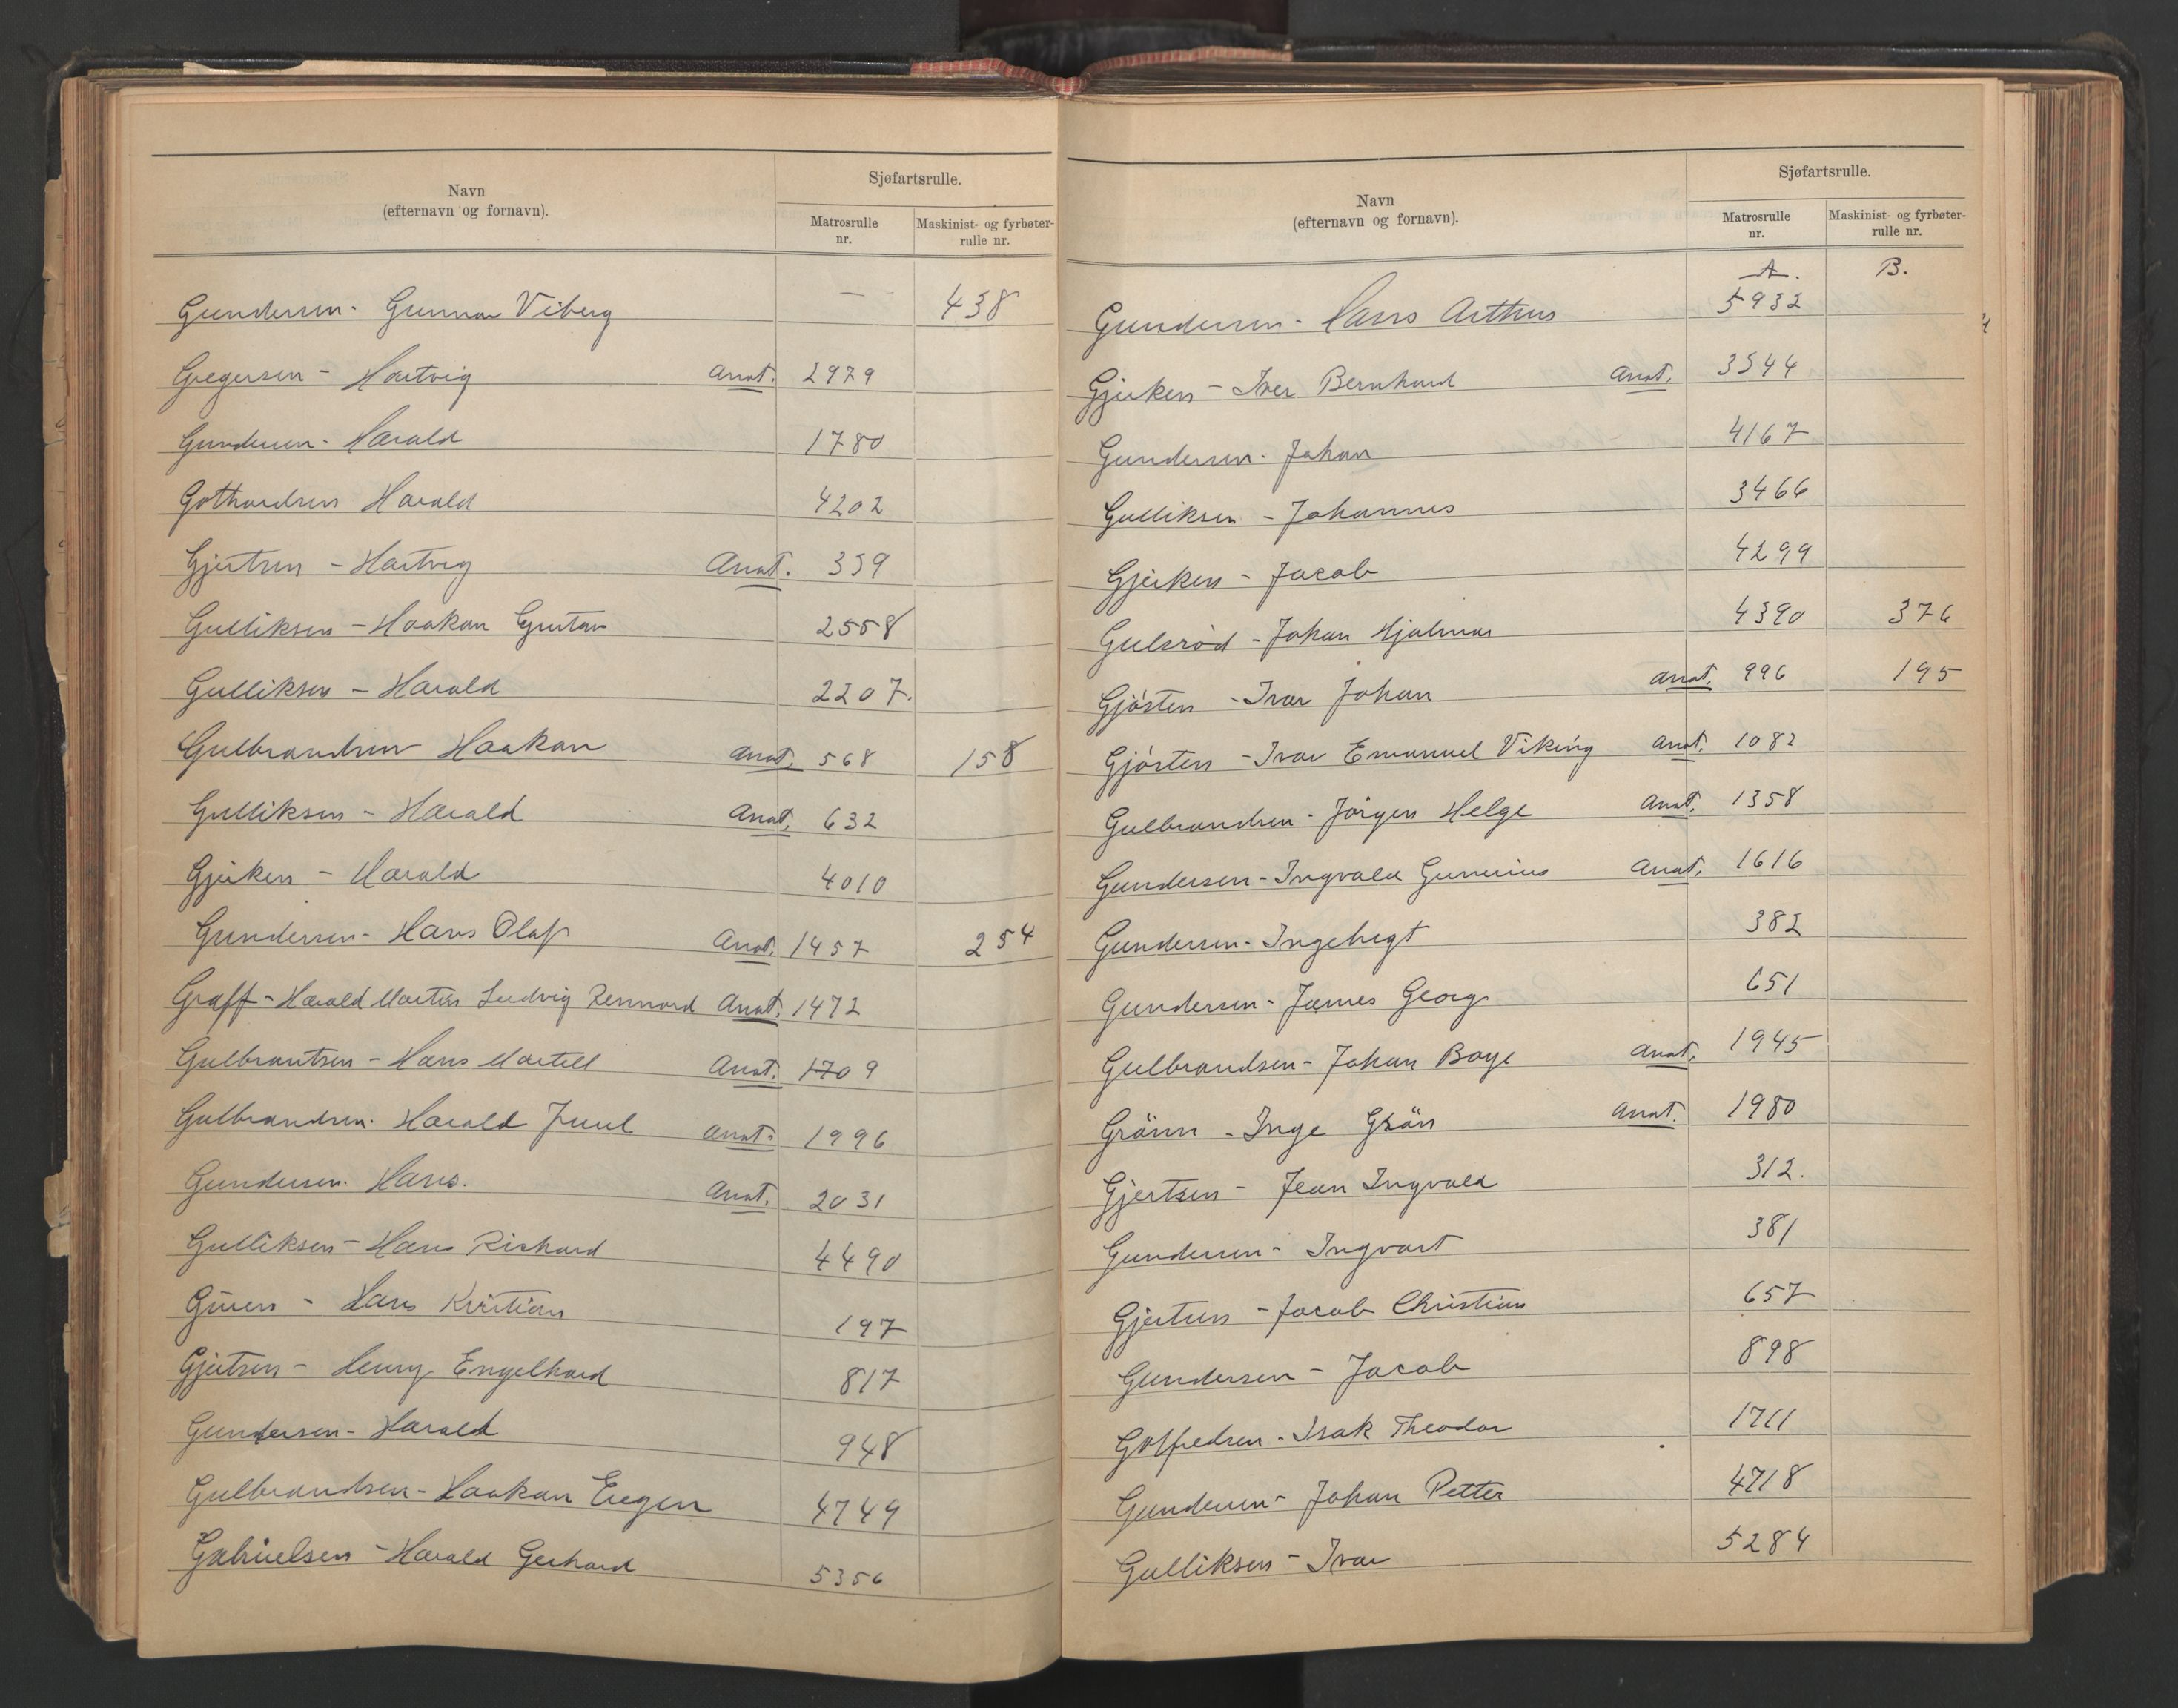 Navn
(efternavn og fornavn).
Sjøfartsrulle.
Matrosrulle
nr.
Maskinist- og fyrbøter-
rulle nr.
Gundersen - Gunnar Viberg — 438
Gregersen - Hartvig Anot. 2979
Gundersen - Harald 1780
Gothardsen Harald 4202
Gjertsen - Hartvig Anot. 359
Gulliksen - Haakon Gustav 2558
Gulliksen - Harald 2207.
Gulbrandsen Haakon Anot. 568 158
Gulliksen - Harald Anot. 632
Gjerken - Harald 4010
Gundersen - Hans Olaf Anot. 1457 254
Graff - Harald Martin Ludvig Anot. 1472
Gulbrantsen - Hans Anot. 1709
Gulbrandsen. Harald Juul Anot. 1996
Gundersen. Hans. Anot. 2031
Gulliksen - Hans Richard 4490
- Hans Kristian 197
Gjertsen - Henry Engelhard 817
Gundersen - Harald 948
Gulbrandsen - Haakon Eugen 4749
Gabrielsen - Harald Gerhard 5356
Navn
(efternavn og fornavn).
Sjøfartsrulle.
Matrosrulle
nr.
Maskinist- og fyrbøter-
rulle nr.
A. B.
Gundersen - Hans Arthur 5932
Gjerken - Iver Bernhard Anot. 3544
Gundersen - Johan 4167
Gulliksen - Johannes 3466
Gjerken - Jacob 4299
Gulsrød - Johan Hjalmar 4390 376
Gjösten - Ivar Johan Anot. 996 195
Gjösten - Ivar Emanuel Viking Anot. 1082
Gulbrandsen - Jörgen Helge Anot. 1358
Gundersen - Ingvald Gunerius Anot. 1616
Gundersen - Ingebregt 382
Gundersen - James Georg 651
Gulbrandsen - Johan Boye Anot. 1945
Grönn - Inge Grön Anot. 1980
Gjertsen - Jean Ingvald 312.
Gundersen - Ingvart 381
Gjertsen - Jacob Christian 657
Gundersen - Jacob 898
Golfredsen - Isak Theodor 1711
Gundersen - Johan Petter 4718
Gulliksen - Ivar 5284